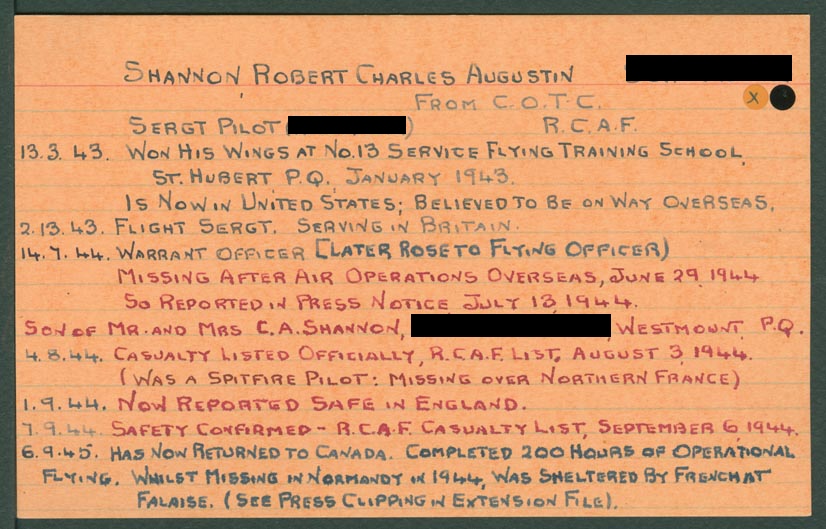 SHANNON ROBERT CHARLES AUGUSTIN
X
FROM C.O.T.C.
SERGT PILOT ( ) R.C.A.F.
13.3.43. WON HIS WINGS AT NO.13 SERVICE FLYING TRAINING SCHOOL,
ST. HUBERT P.Q. JANUARY 1943.
IS NOW IN UNITED STATES; BELIEVED TO BE ON WAY OVERSEAS.
2.13.43. FLIGHT SERGT. SERVING IN BRITAIN.
14.7.44. WARRANT OFFICER [LATER ROSE TO FLYING OFFICER)
MISSING AFTER AIR OPERATIONS OVERSEAS, JUNE 29, 1944
SO REPORTED IN PRESS NOTICE JULY 13, 1944.
SON OF MR. AND MRS C.A. SHANNON, , WESTMOUNT, P.Q.
4.8.44. CASUALTY LISTED OFFICIALLY, R.C.A.F. LIST, AUGUST 3, 1944.
(WAS A SPITFIRE PILOT: MISSING OVER NORTHERN FRANCE)
1.9.44. NOW REPORTED SAFE IN ENGLAND.
7.9.44. SAFETY CONFIRMED - R.C.A.F. CASUALTY LIST, SEPTEMBER 6, 1944.
6.9.45. HAS NOW RETURNED TO CANADA. COMPLETED 200 HOURS OF OPERATIONAL
FLYING. WHILST MISSING IN NORMANDY IN 1944, WAS SHELTERED BY FRENCH AT
FALAISE. (SEE PRESS CLIPPING IN EXTENSION FILE).